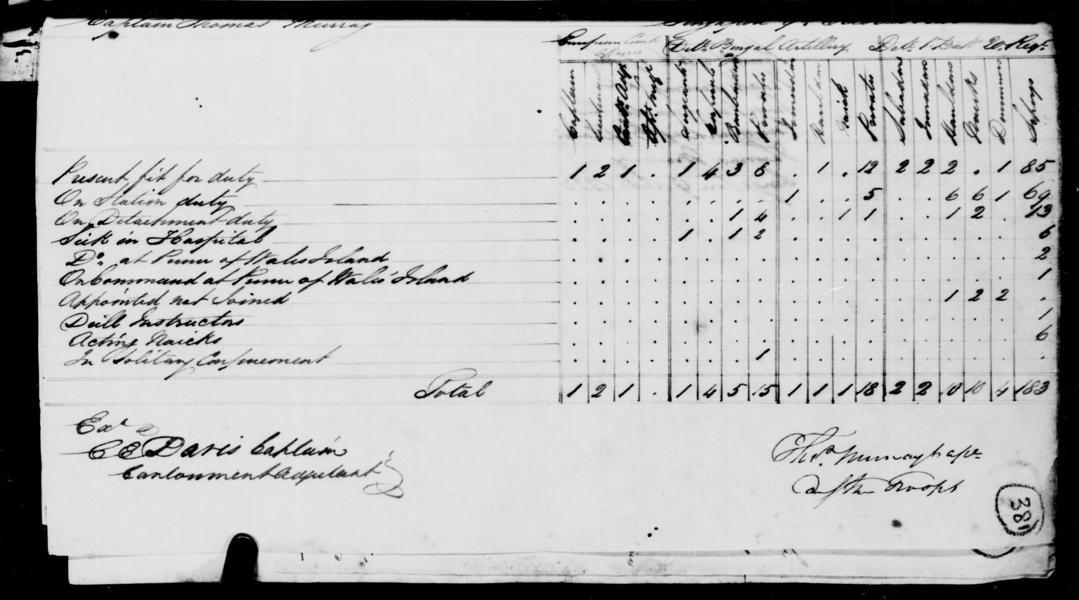 Captain Thomas Murray
Dett. Bengal Artillery Dett. 1st Batt 20 Regt.
Captain Lieutenant Sergeants Corporals Bombardiers Privates Jemadar Havildar Naick Privates Subadars Jemadars Havildars Naicks Drummers Sepoys
Present, fit for duty 1 2 1 . 1 4 3 6 . 1 . 12 2 2 2 . 1 85
On Station duty . . . . . . . . 1 . . 5 . . 6 6 1 69
On Detachment duty . . . . . . 1 4 . . 1 1 . . 1 2 . 13
Sick in Hospital . . . . 1 . 1 2 . . . . . . . . . 6
Do. at Prince of Wales Island . . . . . . . . . . . . . . . . . 2
On Command at Prince of Wales Island . . . . . . . . . . . . . . . . . 1
Appointed not Joined . . . . . . . . . . . . . . 1 2 2 .
Drill Instructors . . . . . . . . . . . . . . . . . 1
Acting Naicks . . . . . . . . . . . . . . . . . 6
In Solitary Confinement . . . . . . . 1 . . . . . . . . . .
Total 1 2 1 . 1 4 5 15 1 1 1 18 2 2 10 10 4 183
Exd
C E Davis Captain
Cantonment Adjutant
Thos. Murray Capn.
Troops
381